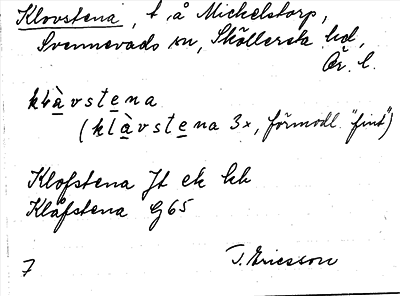 Klovstena, t. å Michelstorp,
Svennevads sn, Sköllersta hd,
Ör. l.
klàvstena
(klàvstena 3x, förmodl. "fint")
Klofstena Jt ek kk
Klåfstena G65
T. Ericsson
7